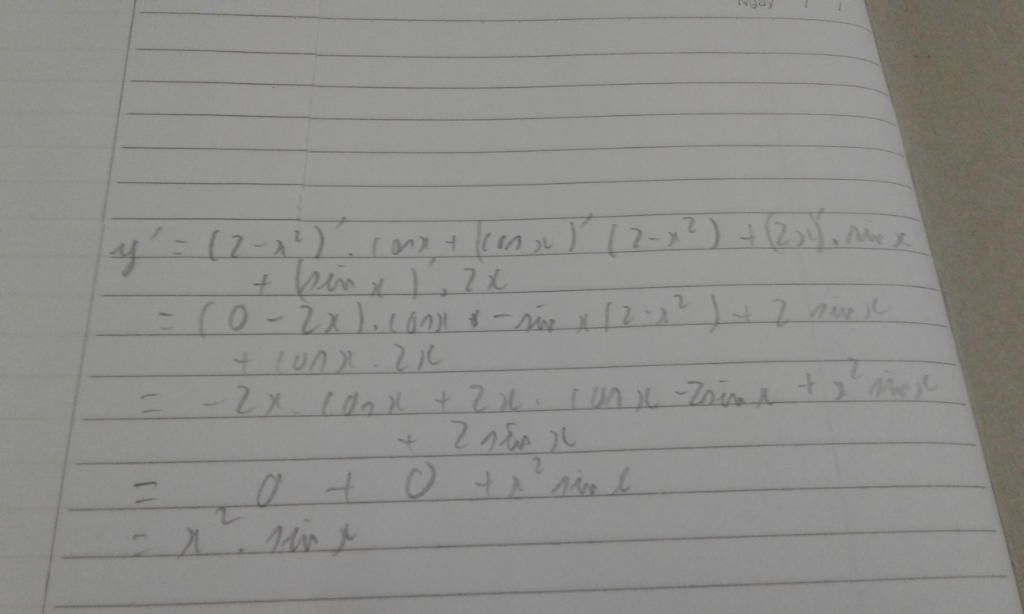 Ngày / /
y' = (2 - x²)'. cosx + (cosx)' (2 - x²) + (2x)'. sinx
+ (sin x)'. 2x
= (0 - 2x). cosx + - sin x (2 - x²) + 2 sinx
+ cosx. 2x
= - 2x. cosx + 2x. cosx - 2sinx + x² sinx
+ 2 sinx
= 0 + 0 + x² sinx
= x². sinx